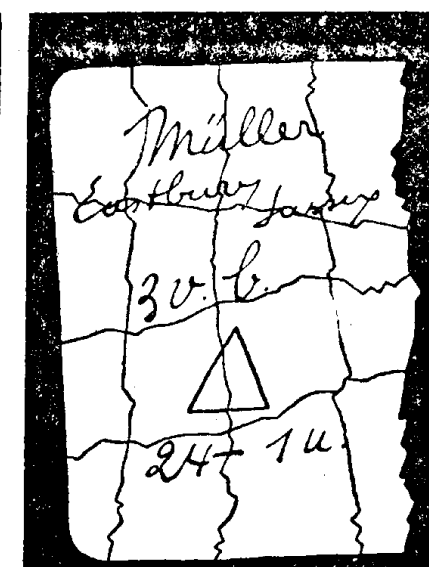 Müller
Eastbury
3 v. b.
24 - 1 u.